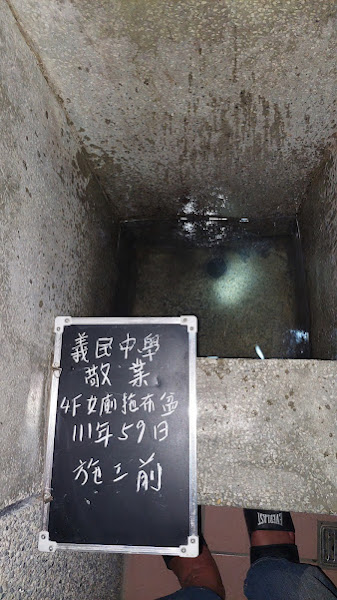 義民中學
敬業
4F女廁拖布區
111年59日
施工前
EVERLAST